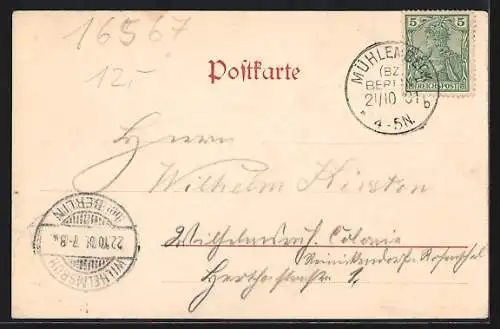 16567
12.-
Postkarte
5 5
REICHSPOST
MÜHLENBECK
(BZ.
BERLIN)
21/10 01
4-5N.
b
Herrn
Wilhelm
Wilhelmsruh. Colonie
Reinickendorf. Rosenthal
Herthastraße 1,
WILHELMSRUH
22.10.01 7-8
BERLIN